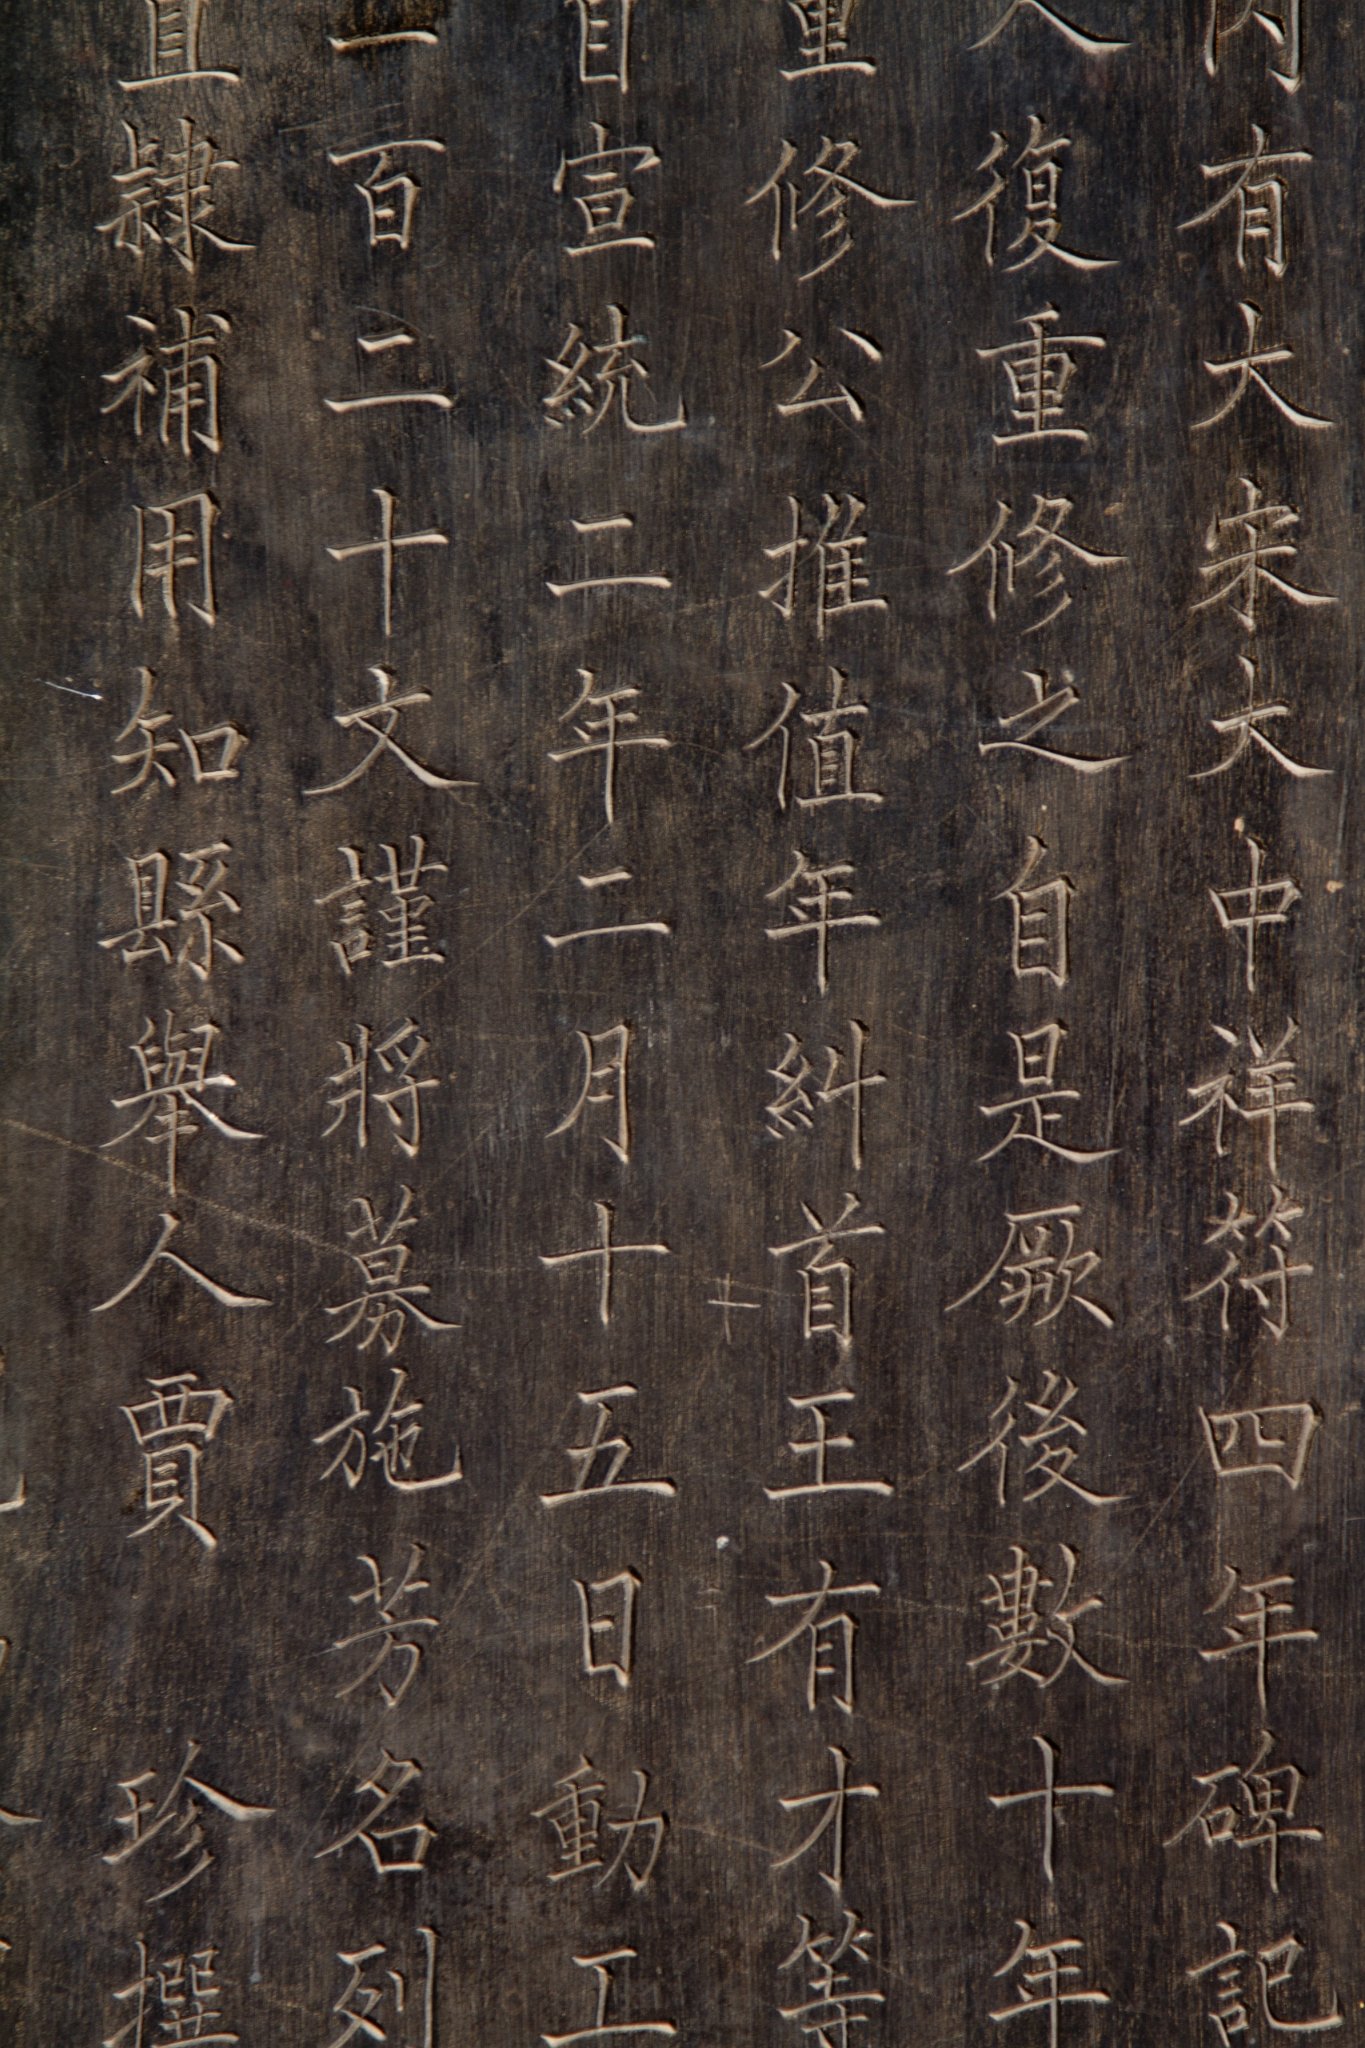 內有大宋大中祥符四年碑記
人復重修之自是厥後數十年
重修公推值年糾首王有才等
自宣統二年二月十五日動工
一百二十文謹將募施芳名列
直隸補用知縣舉人賈珍撰